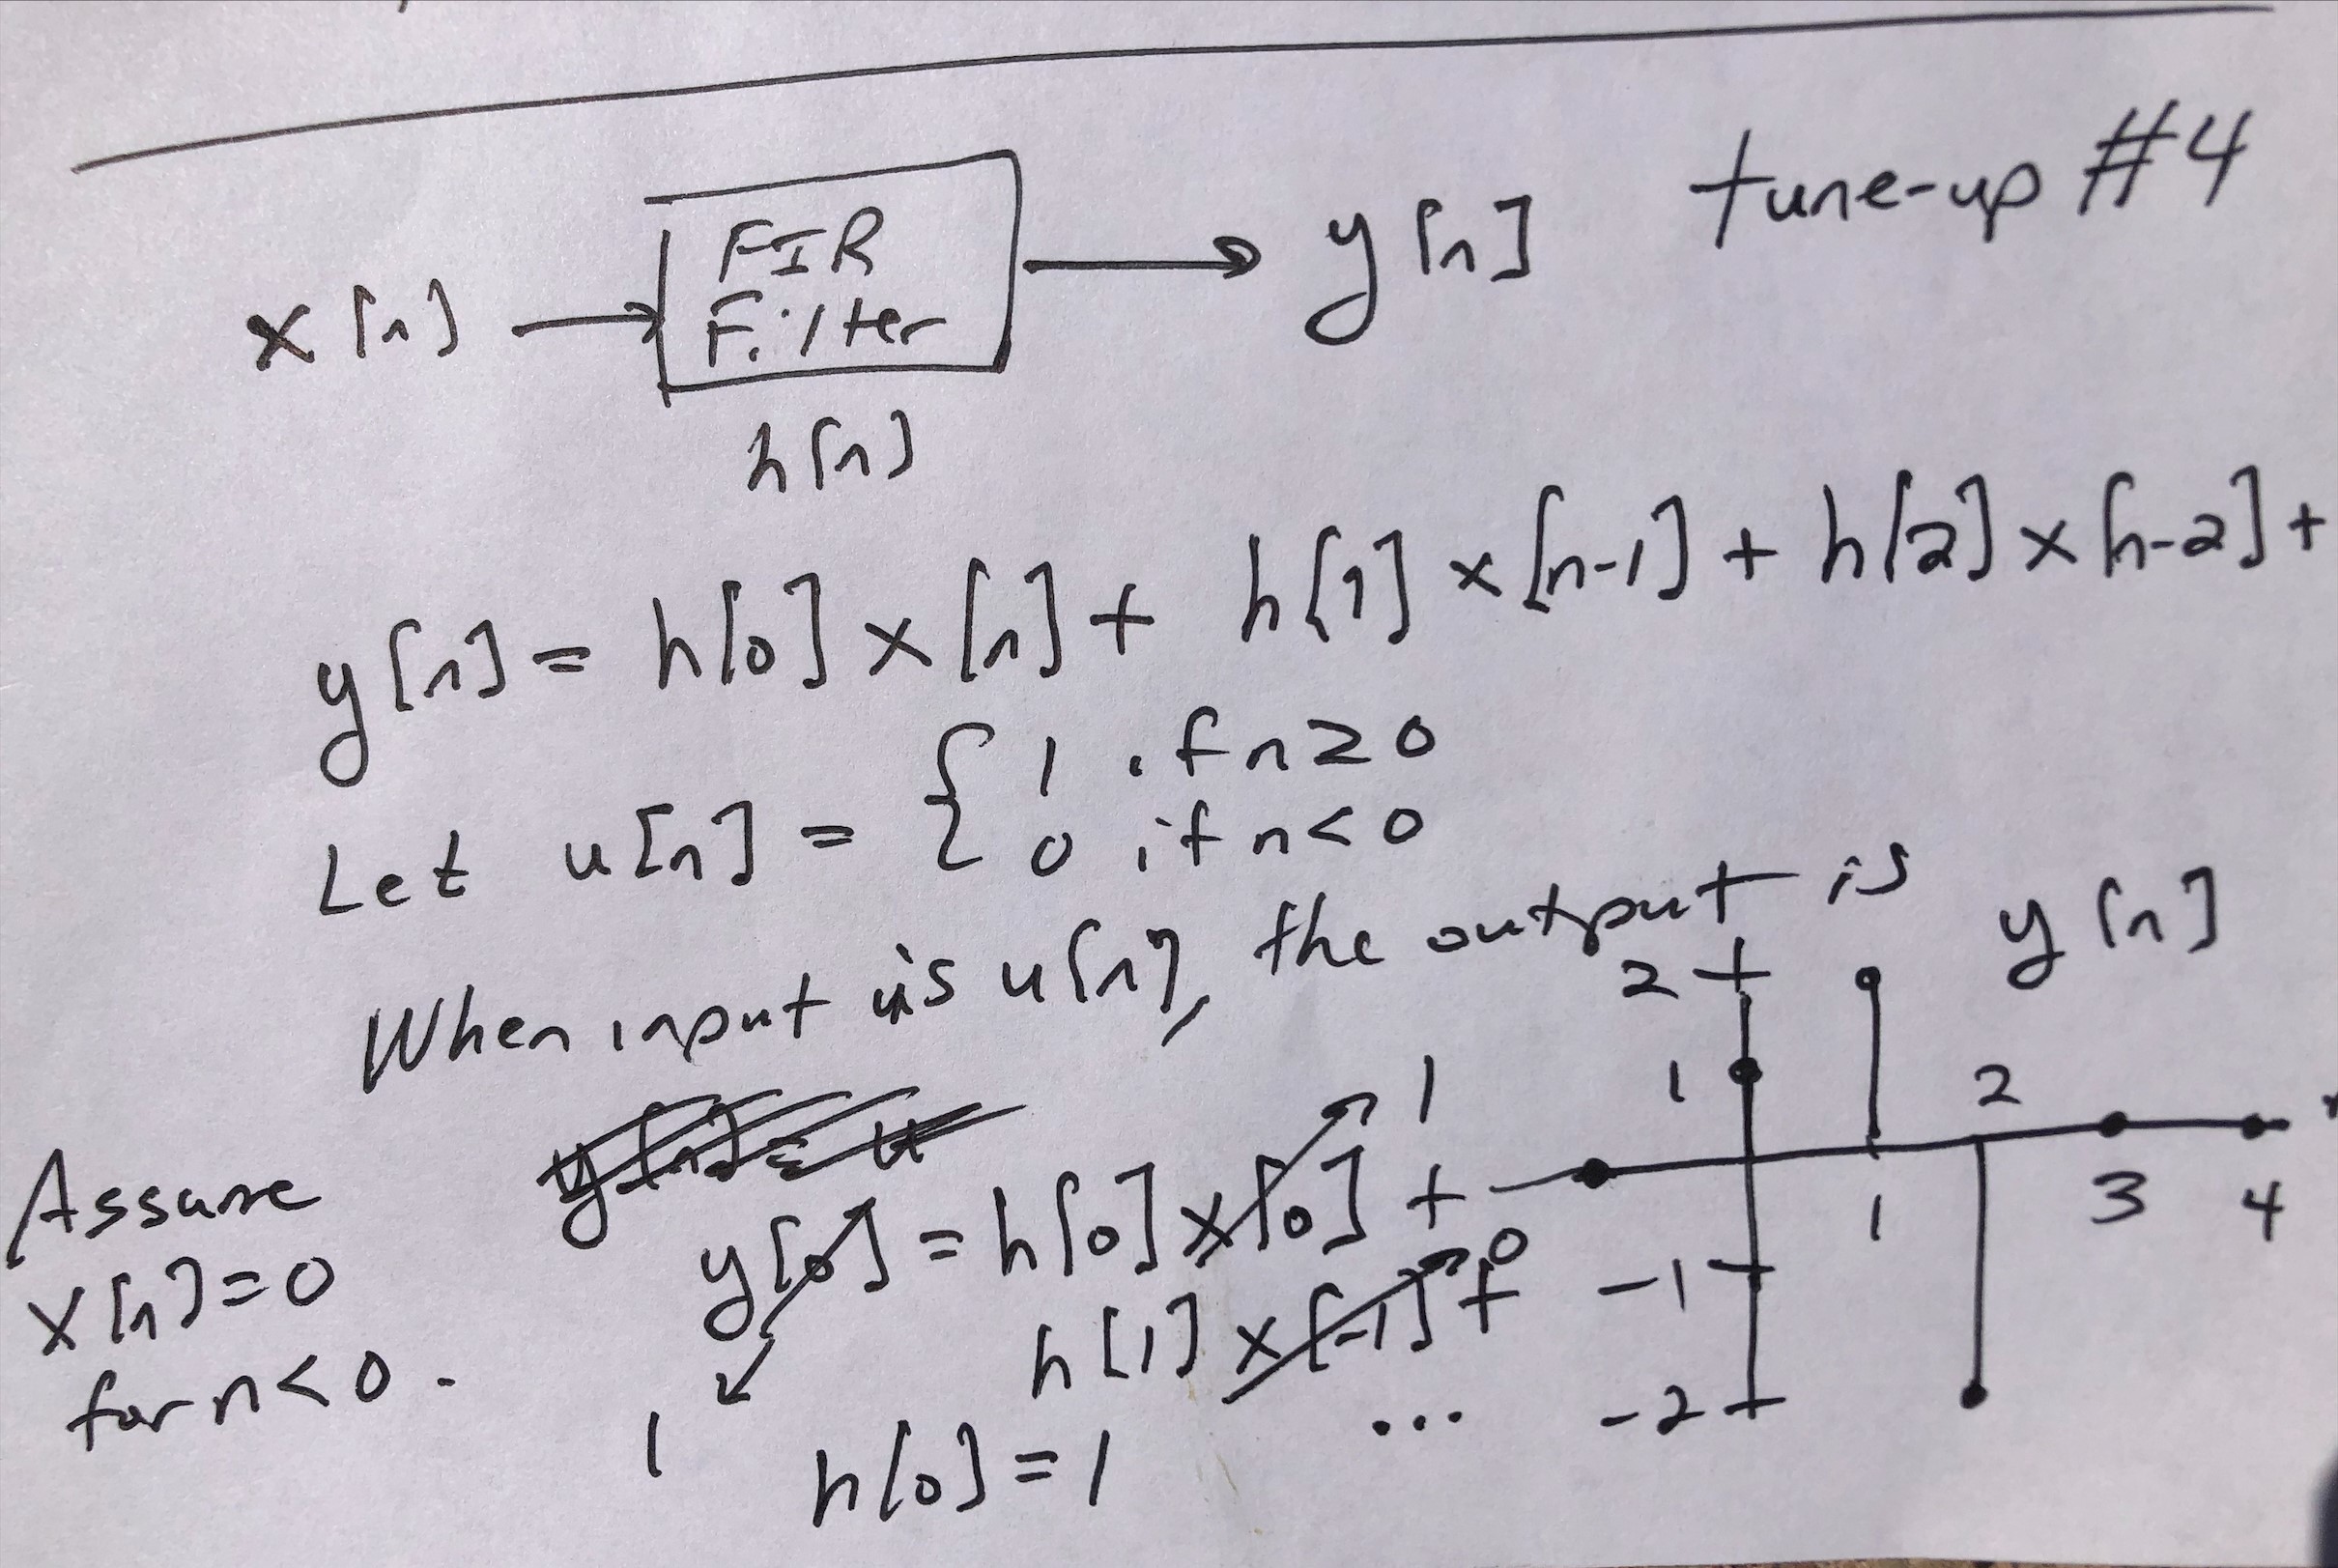 tune-up #4
x[n]
FIR
Filter
y[n]
h[n]
y[n] = h[0] x[n] + h[1] x[n-1] + h[2] x[n-2] +
Let u[n] = { 1 if n ≥ 0
0 if n < 0
When input is u[n], the output is
y[n]
2
1
-1
-2
1
2
3
4
Assume
x[n] = 0
for n < 0.
y[0] = h[0] x[0] +
1
h[1] x[-1] +
0
...
1
h[0] = 1